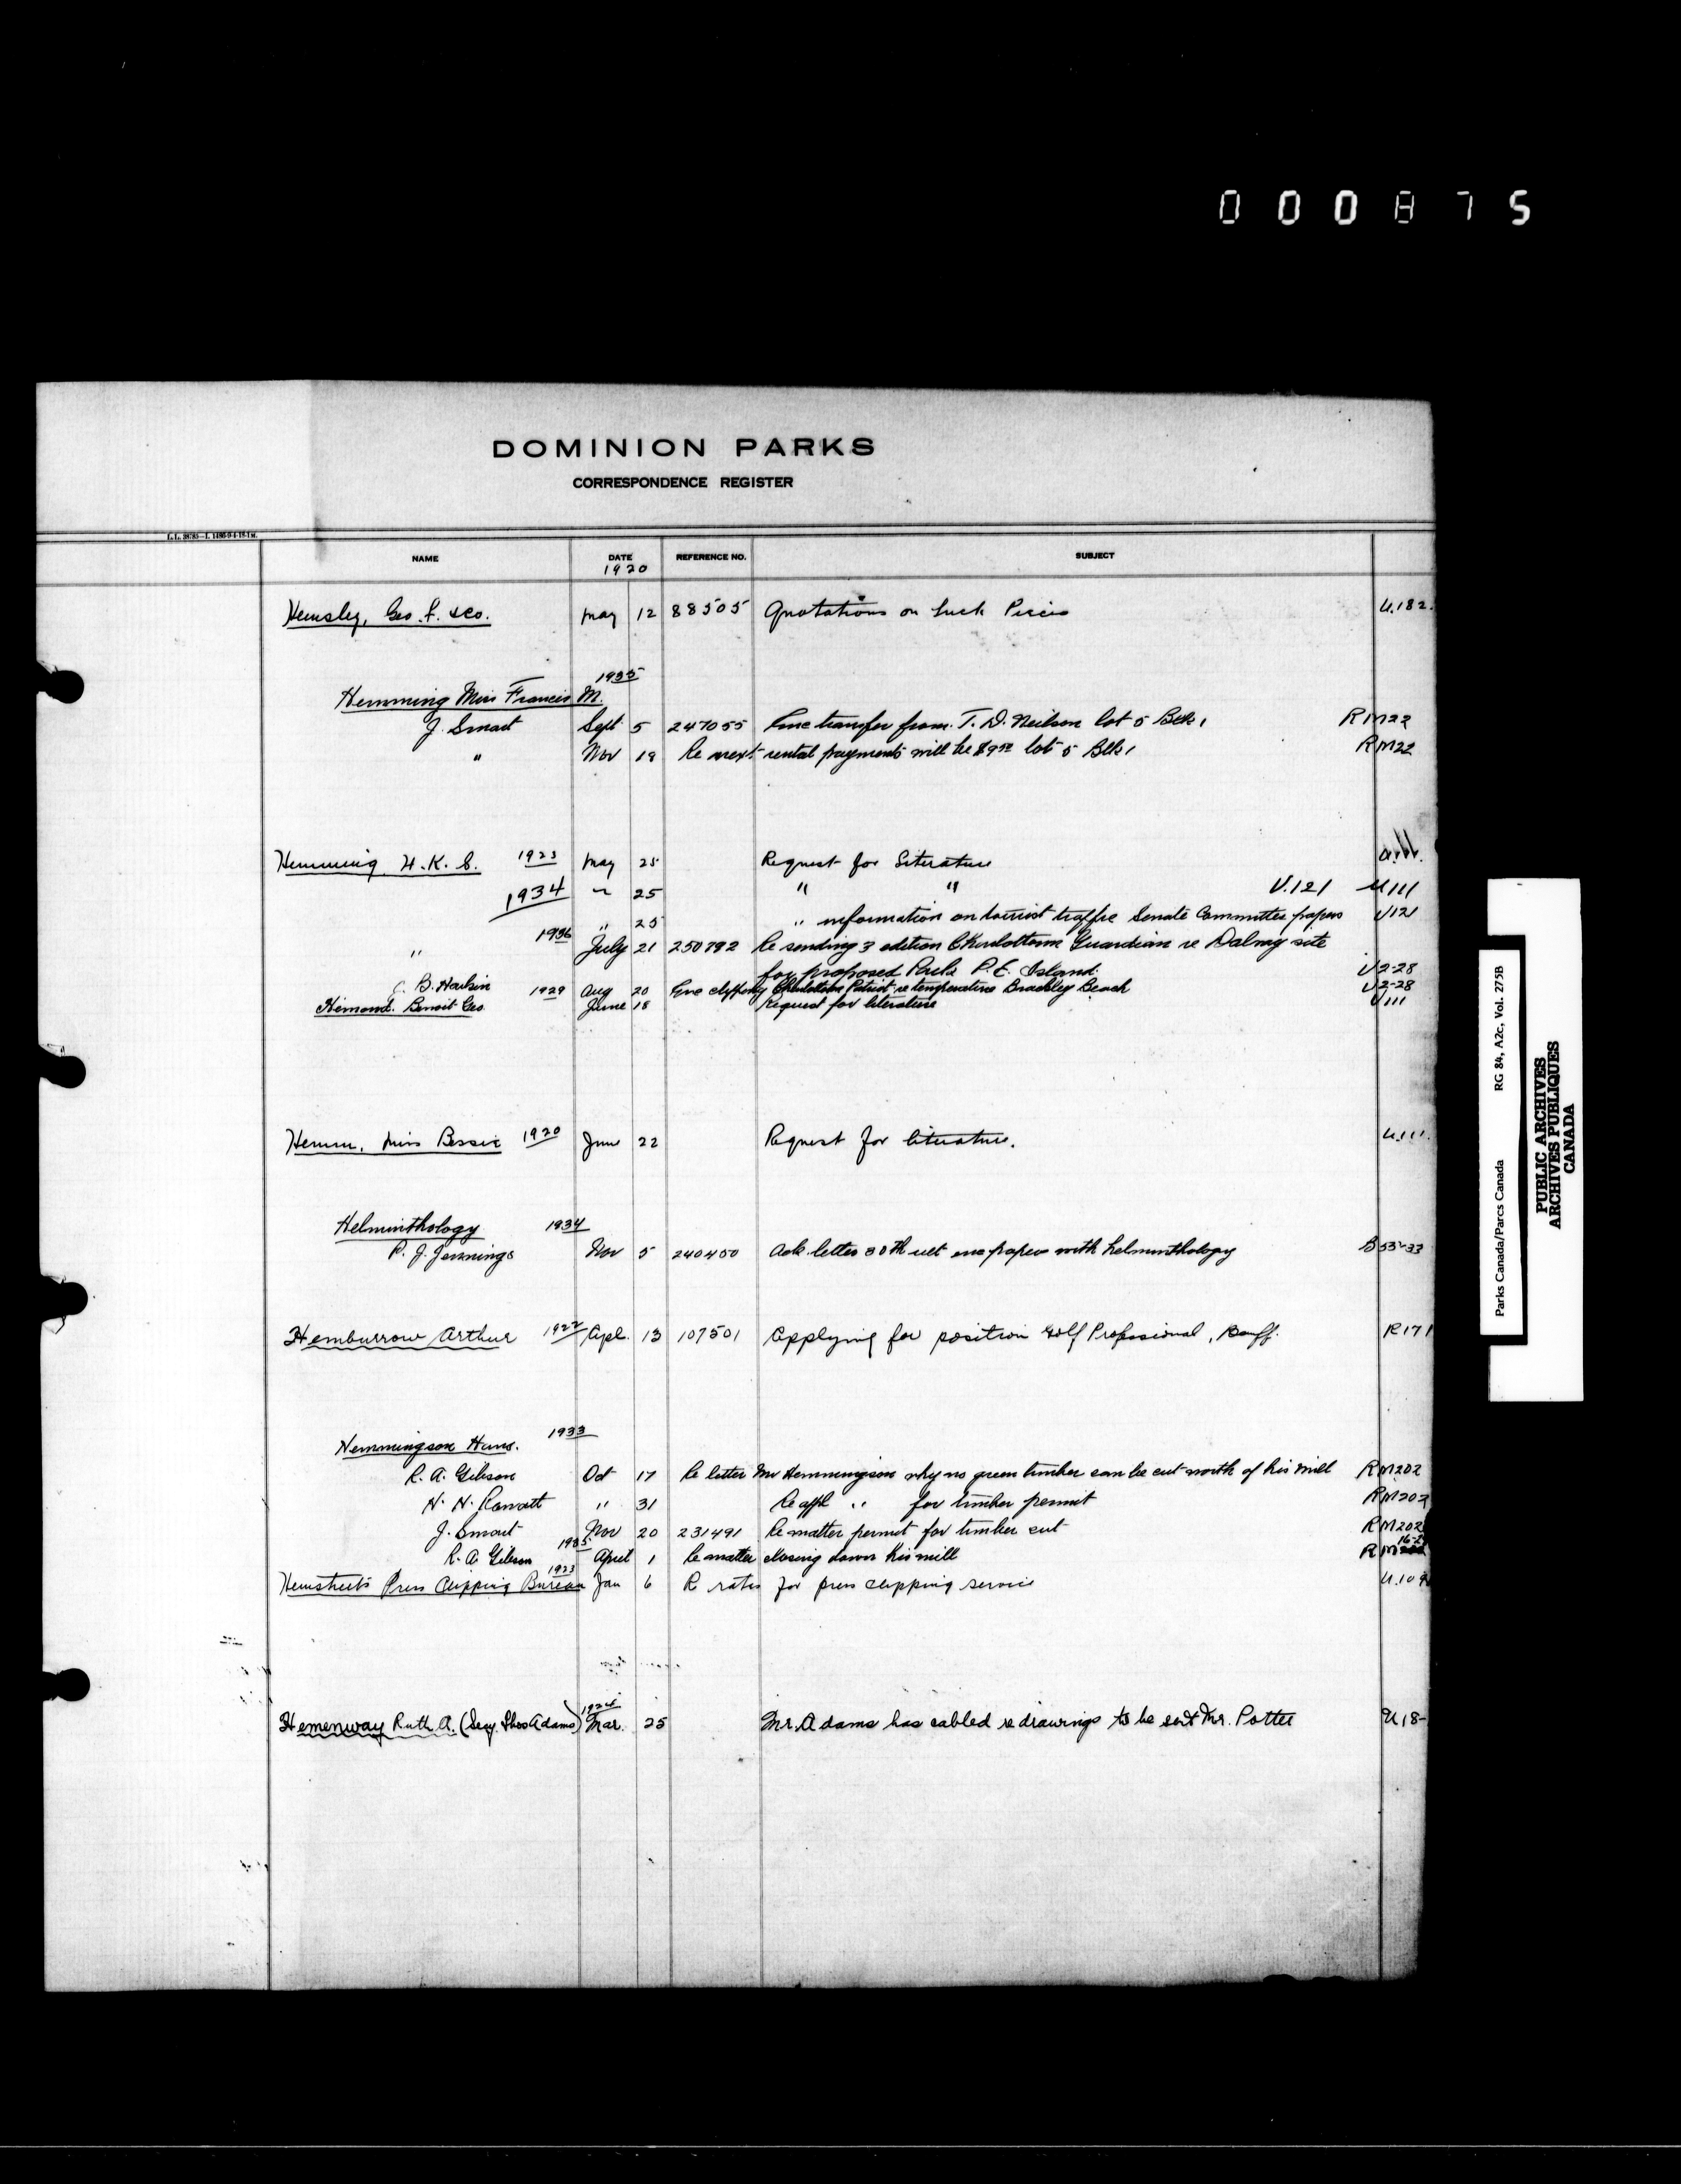 000875
DOMINION PARKS
CORRESPONDENCE REGISTER
NAME DATE REFERENCE NO. SUBJECT
1920
Hemsley, Geo. F. & Co. May 12 88505 Quotations on Luck Pieces U.182.
1935
Hemming Miss Francis M.
J. Smart Sept 5 247055 Enc transfer from T. D. Neilson lot 5 Blk 1 RM22
" Nov 19 Re next rental payments will be lot 5 Blk 1 RM22
Hemming H. K. S. 1923 May 25 Request for Literature
1934 " 25 " " U.121 U111
" 25 " information on tourist traffic Senate Committee papers U121
1936
" July 21 250792 Re sending 3 edition Charlottetown Guardian re Dalvay site
for proposed Park P. E. Island. U2-28
J. B. Harkin Aug 20 Enc clipping Charlottetown Patriot re temperature Brackley Beach U2-28
Hemond. Benoit Geo 1929 June 18 Request for literature U111
Hemm, Miss Bessie 1920 June 22 Request for literature. U.111.
Helminthology 1934
P. J. Jennings Nov 5 240400 Ack letter 30th ult enc paper with helminthology B53-33
Hemburrow Arthur 1922 Apl. 13 107501 Applying for position Golf Professional, Banff. R171
Hemmingson Hans. 1933
R. A. Gibson Oct 17 Re letter Mr Hemmingson why no green timber can be cut north of his mill RM202
H. H. Rowatt " 31 Re appl " for timber permit RM202
J. Smart Nov 20 231491 Re matter permit for timber cut RM202
1935
R. A. Gibson April 1 Re matter closing down his mill RM 16-2
Hemstreets Press Clipping Bureau 1923 Jan 6 R rates for press clipping service U.109
1924
Hemenway Ruth A. (Secy. Thos Adams) Mar. 25 Mr. Adams has cabled re drawings to be sent Mr. Potter U18-
Parks Canada/Parcs Canada RG 84, A2c, Vol. 275B
PUBLIC ARCHIVES
ARCHIVES PUBLIQUES
CANADA